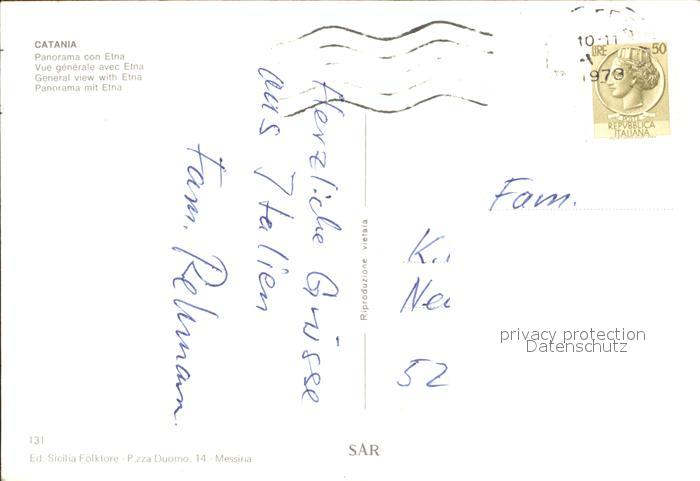 CATANIA
Panorama con Etna
Vue générale avec Etna
General view with Etna
Panorama mit Etna
Herzliche Grüsse
aus Italien
Fam.
10-11
1973
LIRE 50
REPVBBLICA
ITALIANA
Riproduzione vietata
Fam.
K.
52
privacy protection
Datenschutz
131
Ed. Sicilia Folklore - P.zza Duomo, 14 - Messina
SAR